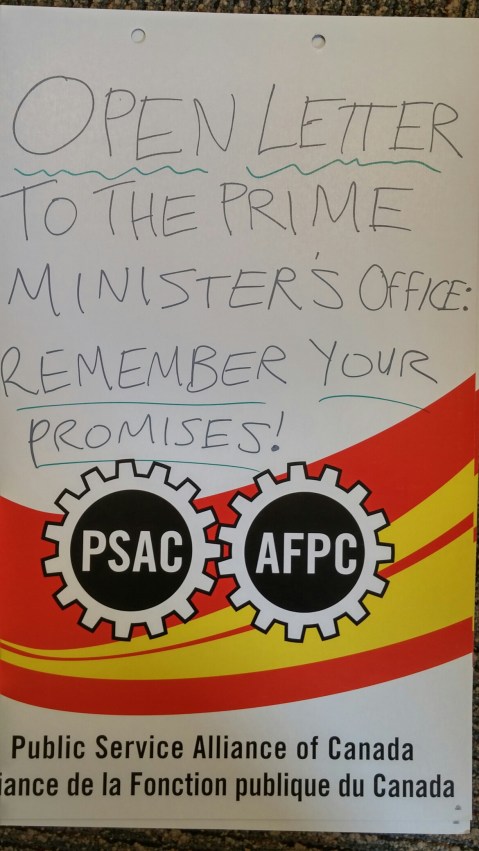 OPEN LETTER
TO THE PRIME
MINISTER'S OFFICE:
REMEMBER YOUR
PROMISES!
PSAC AFPC
Public Service Alliance of Canada
iance de la Fonction publique du Canada